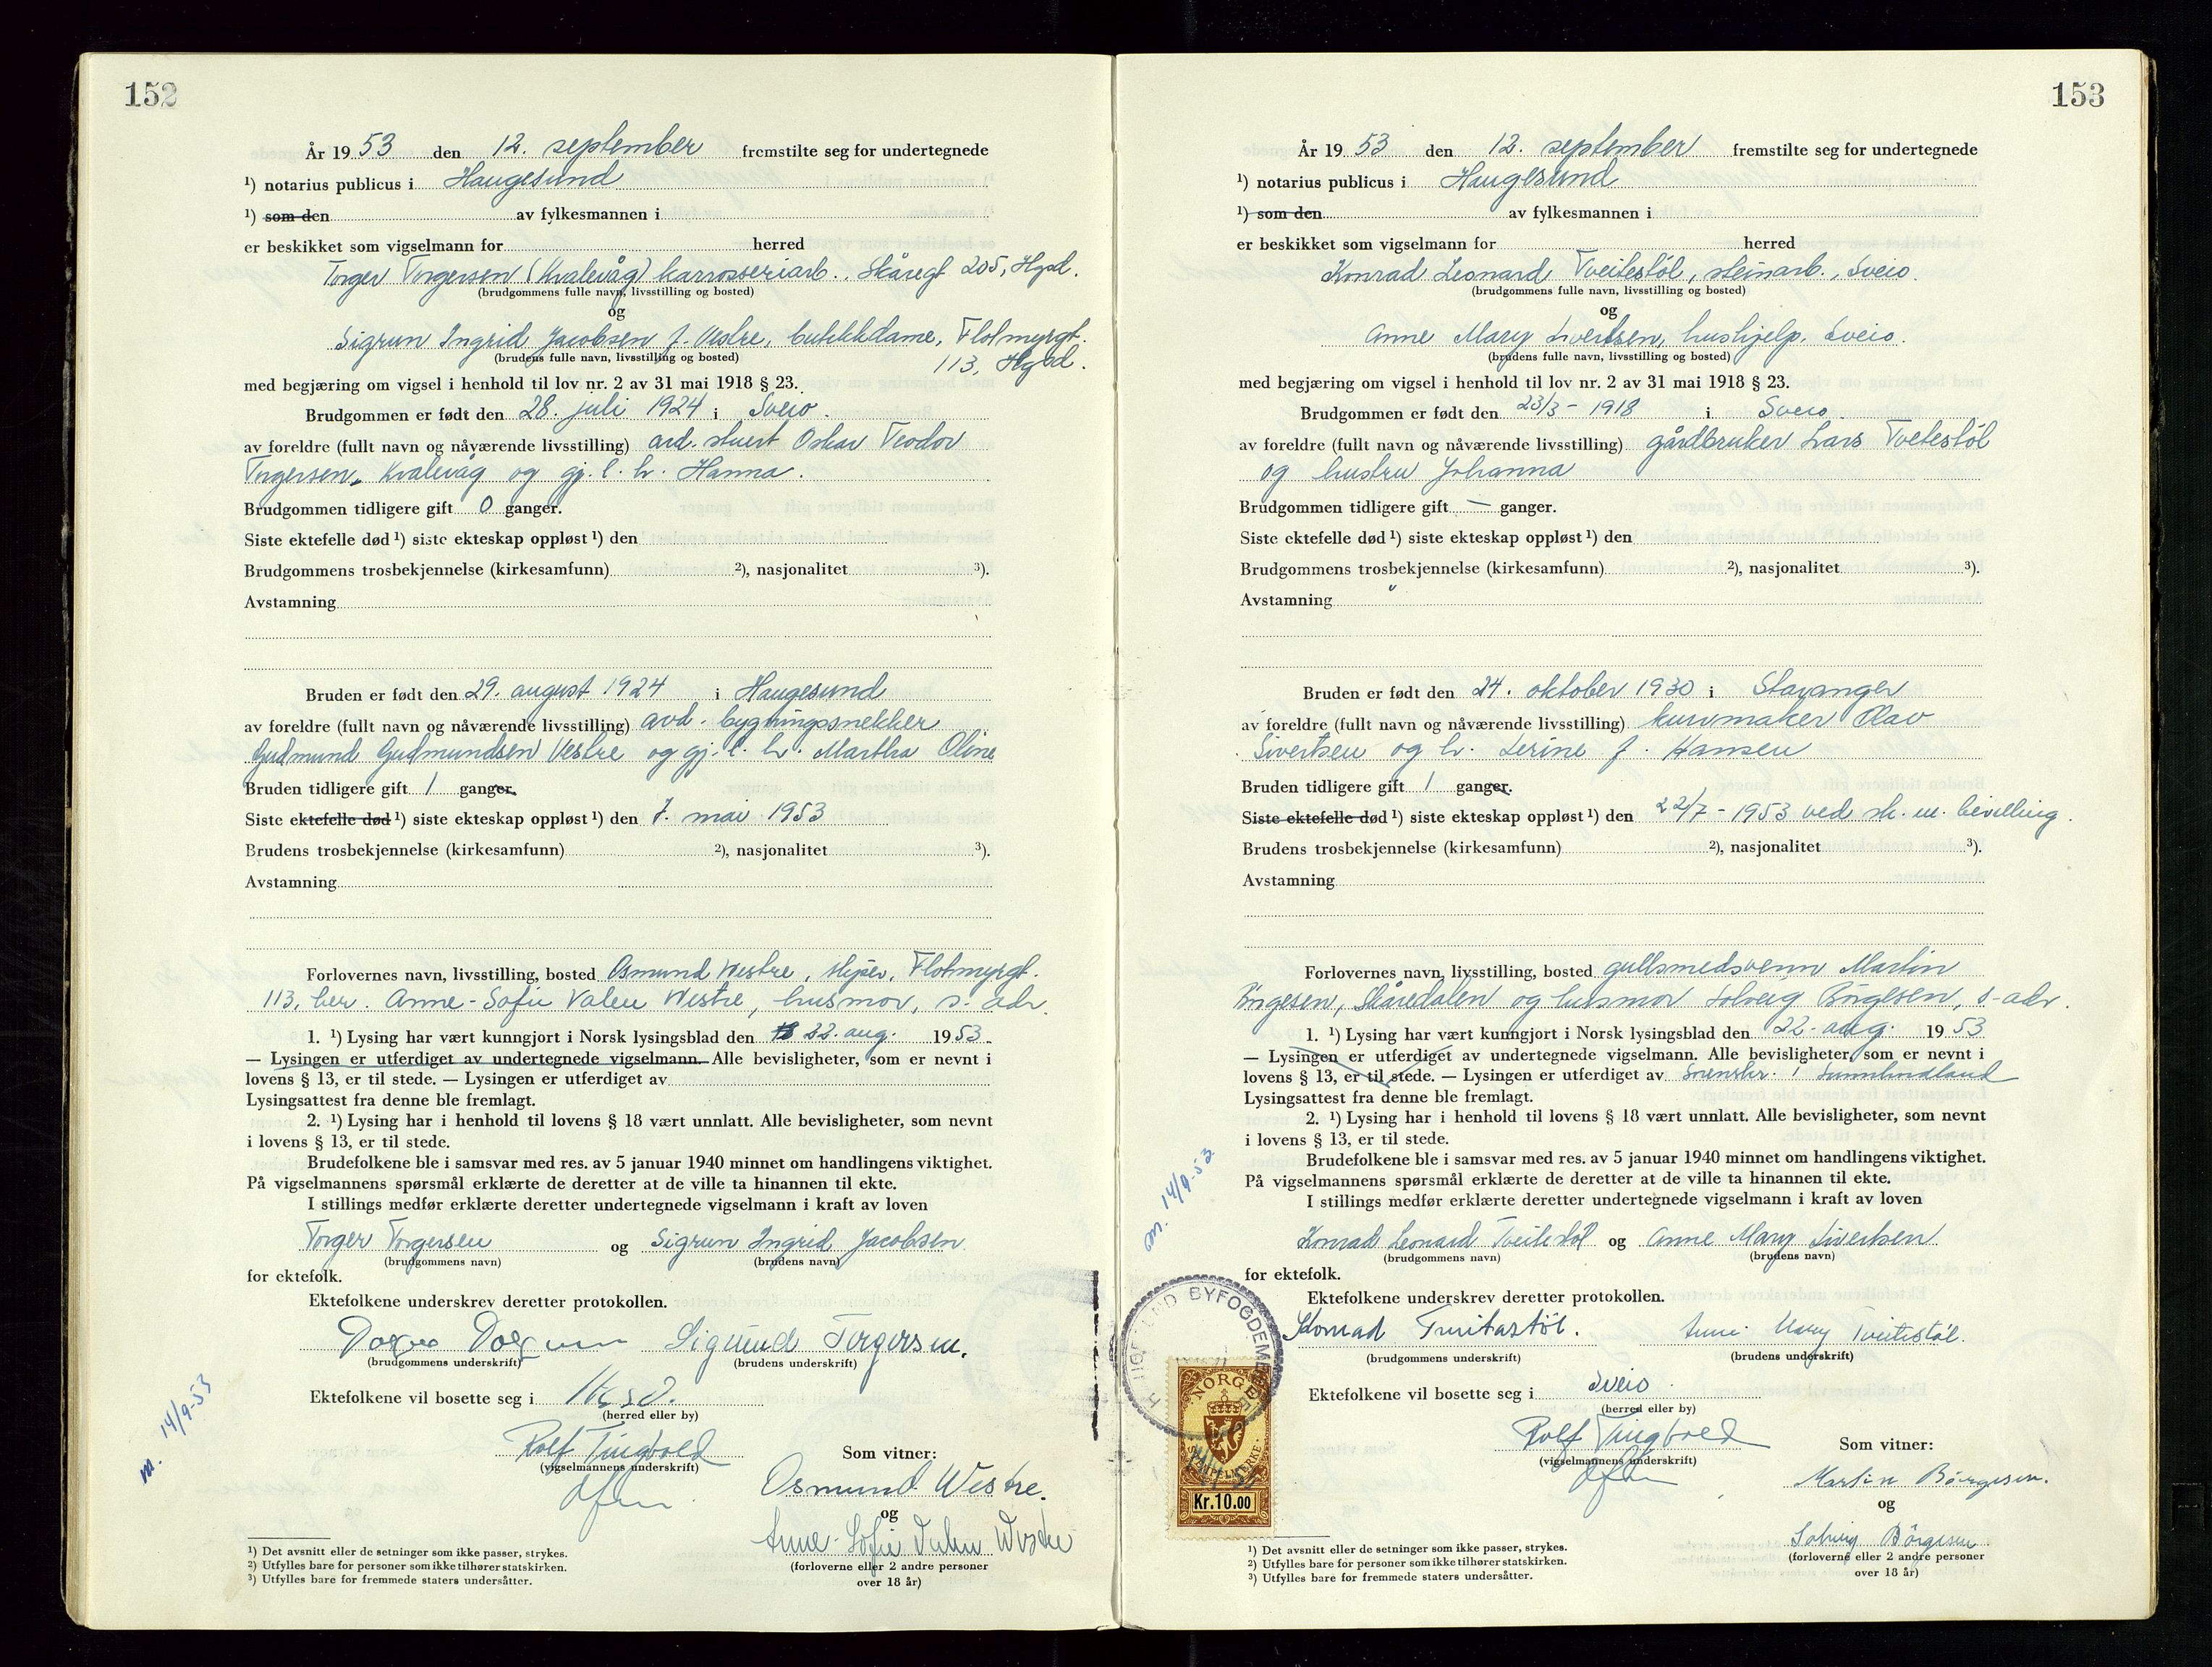 152
År 19 53 den 12. september fremstilte seg for undertegnede
¹) notarius publicus i Haugesund
¹) som den av fylkesmannen i
er beskikket som vigselmann for herred
Torger Torgersen (Kvalevåg) karrosseriarb., Skåregt 205, Hgsd.
(brudgommens fulle navn, livsstilling og bosted)
og
Sigrun Ingrid Jacobsen f. Vestre, butikkdame, Flotmyrgt.
113, Hgsd.
(brudens fulle navn, livsstilling og bosted)
med begjæring om vigsel i henhold til lov nr. 2 av 31 mai 1918 § 23.
Brudgommen er født den 28. juli 1924 i Sveio.
av foreldre (fullt navn og nåværende livsstilling) avd. stuert Oskar Teodor
Torgersen, Kvalevåg og gj. l. h. Hanna.
Brudgommen tidligere gift 0 ganger.
Siste ektefelle død ¹) siste ekteskap oppløst ¹) den
Brudgommens trosbekjennelse (kirkesamfunn) ²), nasjonalitet ³).
Avstamning
Bruden er født den 29. august 1924 i Haugesund
av foreldre (fullt navn og nåværende livsstilling) avd. bygningssnekker
Gudmund Gudmundsen Vestre og gj. l. h. Martha Oline
Bruden tidligere gift 1 ganger.
Siste ektefelle død ¹) siste ekteskap oppløst ¹) den 7. mai 1953
Brudens trosbekjennelse (kirkesamfunn) ²), nasjonalitet ³).
Avstamning
Forlovernes navn, livsstilling, bosted Osmund Westre, sliper, Flotmyrgt.
113, her. Anne-Sofie Valen Westre, husmor, s. adr.
1. ¹) Lysing har vært kunngjort i Norsk lysingsblad den 22. aug. 1953.
— Lysingen er utferdiget av undertegnede vigselmann. Alle bevisligheter, som er nevnt i
lovens § 13, er til stede. — Lysingen er utferdiget av
Lysingsattest fra denne ble fremlagt.
2. ¹) Lysing har i henhold til lovens § 18 vært unnlatt. Alle bevisligheter, som nevnt
i lovens § 13, er til stede.
Brudefolkene ble i samsvar med res. av 5 januar 1940 minnet om handlingens viktighet.
På vigselmannens spørsmål erklærte de deretter at de ville ta hinannen til ekte.
I stillings medfør erklærte deretter undertegnede vigselmann i kraft av loven
Torger Torgersen og Sigrun Ingrid Jacobsen
(brudgommens navn) (brudens navn)
for ektefolk.
Ektefolkene underskrev deretter protokollen.
Sigrund Torgersen.
(brudgommens underskrift) (brudens underskrift)
Ektefolkene vil bosette seg i Hgsd.
(herred eller by)
m. 14/9-53
Rolf Tingvold
(vigselmannens underskrift)
Som vitner:
Osmund Westre.
og
Anne-Sofie Valen Westre
(forloverne eller 2 andre personer
over 18 år)
¹) Det avsnitt eller de setninger som ikke passer, strykes.
²) Utfylles bare for personer som ikke tilhører statskirken.
³) Utfylles bare for fremmede staters undersåtter.
153
År 19 53 den 12. september fremstilte seg for undertegnede
¹) notarius publicus i Haugesund
¹) som den av fylkesmannen i
er beskikket som vigselmann for herred
Konrad Leonard Tveitestöl, steinarb., Sveio.
(brudgommens fulle navn, livsstilling og bosted)
og
Anne Mary Sivertsen, hushjelp. Sveio.
(brudens fulle navn, livsstilling og bosted)
med begjæring om vigsel i henhold til lov nr. 2 av 31 mai 1918 § 23.
Brudgommen er født den 23/3 - 1918 i Sveio
av foreldre (fullt navn og nåværende livsstilling) gårdbruker Lars Tveitestöl
og hustru Johanna
Brudgommen tidligere gift — ganger.
Siste ektefelle død ¹) siste ekteskap oppløst ¹) den
Brudgommens trosbekjennelse (kirkesamfunn) ²), nasjonalitet ³).
Avstamning
Bruden er født den 24. oktober 1930 i Stavanger
av foreldre (fullt navn og nåværende livsstilling) kurvmaker Olav
Sivertsen og h. Serine f. Hansen
Bruden tidligere gift 1 ganger.
Siste ektefelle død ¹) siste ekteskap oppløst ¹) den 22/7 - 1953 ved sk. m. bevilling.
Brudens trosbekjennelse (kirkesamfunn) ²), nasjonalitet ³).
Avstamning
Forlovernes navn, livsstilling, bosted gullsmedsvenn Martin
Börgesen, Skåredalen og husmor Solveig Börgesen, s-adr.
1. ¹) Lysing har vært kunngjort i Norsk lysingsblad den 22. aug. 1953
— Lysingen er utferdiget av undertegnede vigselmann. Alle bevisligheter, som er nevnt i
lovens § 13, er til stede. — Lysingen er utferdiget av Sorenskr. i Sunnhordland
Lysingsattest fra denne ble fremlagt.
2. ¹) Lysing har i henhold til lovens § 18 vært unnlatt. Alle bevisligheter, som nevnt
i lovens § 13, er til stede.
Brudefolkene ble i samsvar med res. av 5 januar 1940 minnet om handlingens viktighet.
På vigselmannens spørsmål erklærte de deretter at de ville ta hinannen til ekte.
I stillings medfør erklærte deretter undertegnede vigselmann i kraft av loven
m. 14/9-53
Konrad Leonard Tveitestöl og Anne Mary Sivertsen
(brudgommens navn) (brudens navn)
for ektefolk.
Ektefolkene underskrev deretter protokollen.
Konrad Tveitestöl. Anne Mary Tveitestöl.
(brudgommens underskrift) (brudens underskrift)
Ektefolkene vil bosette seg i Sveio.
(herred eller by)
HAUGESUND BYFOGDEMBETE
NORGE
STEMPELMERKE
Kr.10.00
Rolf Tingvold
(vigselmannens underskrift)
Som vitner:
Martin Börgesen.
og
Solveig Börgesen
(forloverne eller 2 andre personer
over 18 år)
¹) Det avsnitt eller de setninger som ikke passer, strykes.
²) Utfylles bare for personer som ikke tilhører statskirken.
³) Utfylles bare for fremmede staters undersåtter.